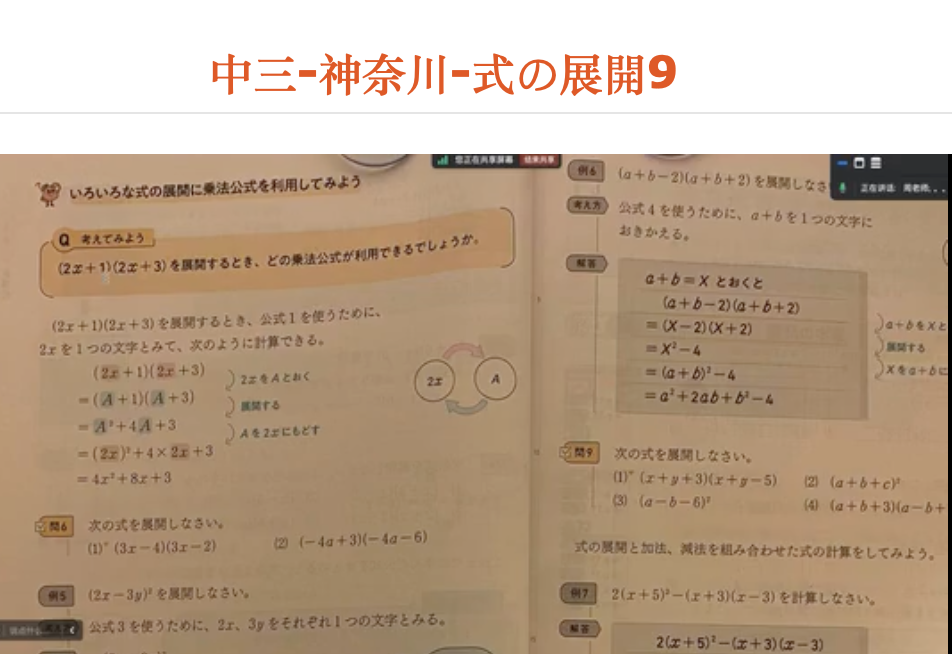 中三-神奈川-式の展開9
您正在共享屏幕 结束共享
いろいろな式の展開に乗法公式を利用してみよう
Q 考えてみよう
(2x+1)(2x+3)を展開するとき、どの乗法公式が利用できるでしょうか。
(2x+1)(2x+3)を展開するとき、公式1を使うために、
2xを1つの文字とみて、次のように計算できる。
(2x+1)(2x+3)
=(A+1)(A+3)
=A²+4A+3
=(2x)²+4×2x+3
=4x²+8x+3
2xをAとおく
展開する
Aを2xにもどす
2x A
問6 次の式を展開しなさい。
(1)° (3x-4)(3x-2) (2) (-4a+3)(-4a-6)
例5 (2x-3y)²を展開しなさい。
公式3を使うために、2x、3yをそれぞれ1つの文字とみる。
正在讲话:
例6 (a+b-2)(a+b+2)を展開しなさ
考え方 公式4を使うために、a+bを1つの文字に
おきかえる。
解答
a+b=Xとおくと
(a+b-2)(a+b+2)
=(X-2)(X+2)
=X²-4
=(a+b)²-4
=a²+2ab+b²-4
a+bをXと
展開する
Xをa+bに
問9 次の式を展開しなさい。
(1)° (x+y+3)(x+y-5) (2) (a+b+c)²
(3) (a-b-6)² (4) (a+b+3)(a-b+
式の展開と加法、減法を組み合わせた式の計算をしてみよう。
例7 2(x+5)²-(x+3)(x-3)を計算しなさい。
解答
2(x+5)²-(x+3)(x-3)